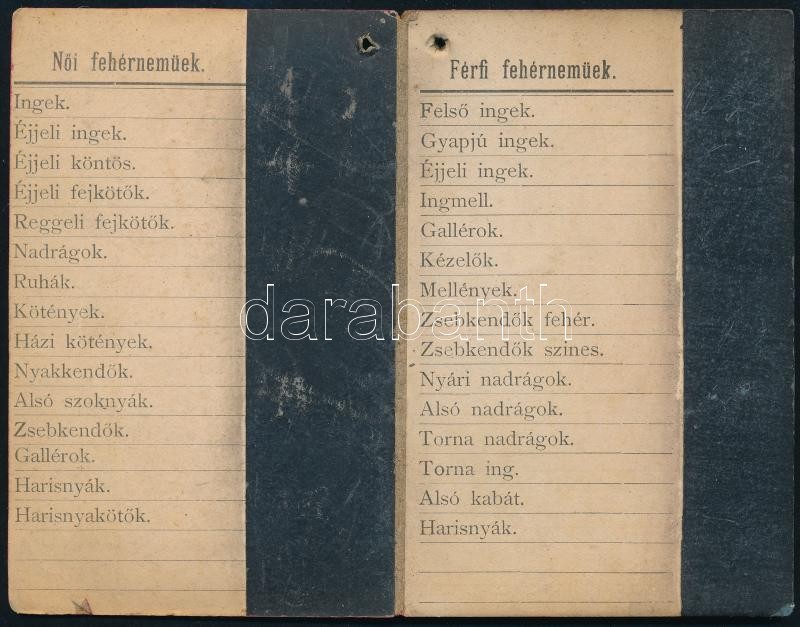 Női fehérneműek.
Ingek.
Éjjeli ingek.
Éjjeli köntös.
Éjjeli fejkötők.
Reggeli fejkötők.
Nadrágok.
Ruhák.
Kötények.
Házi kötények.
Nyakkendők.
Alsó szoknyák.
Zsebkendők.
Gallérok.
Harisnyák.
Harisnyakötők.
Férfi fehérneműek.
Felső ingek.
Gyapjú ingek.
Éjjeli ingek.
Ingmell.
Gallérok.
Kézelők.
Mellények.
Zsebkendők fehér.
Zsebkendők szines.
Nyári nadrágok.
Alsó nadrágok.
Torna nadrágok.
Torna ing.
Alsó kabát.
Harisnyák.
darabanth